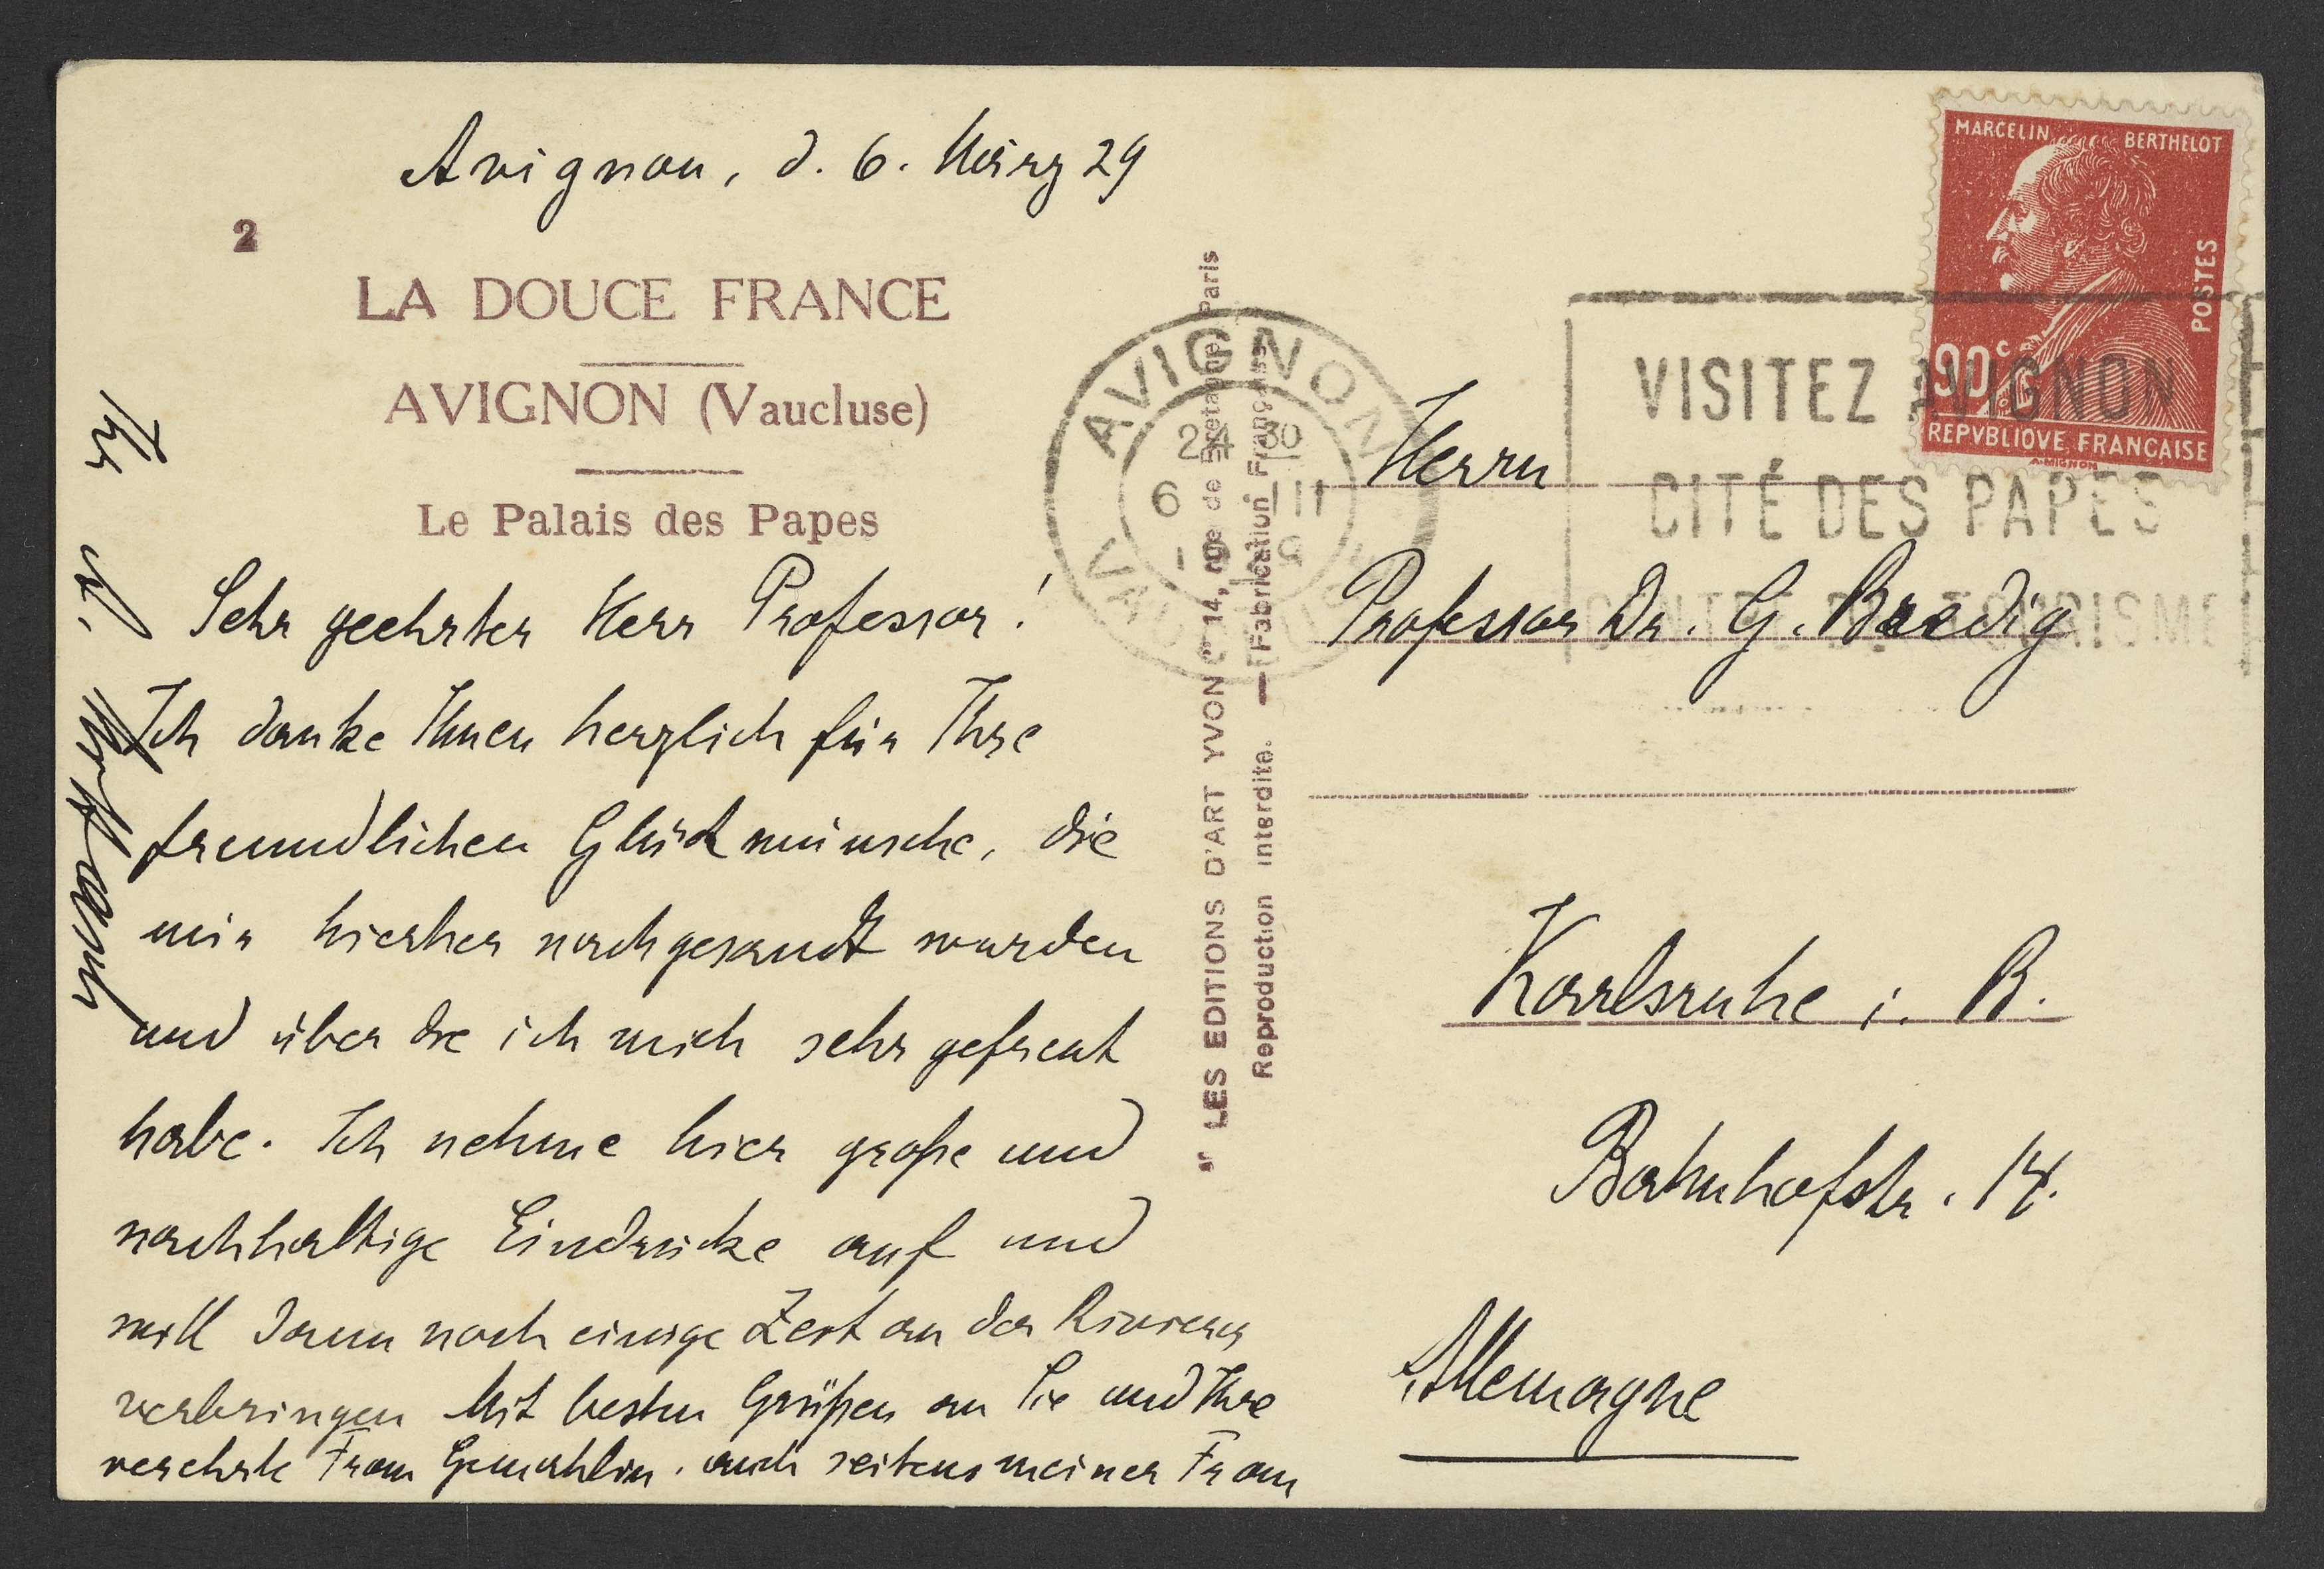 Avignon, d. 6. März 29
2
LA DOUCE FRANCE
AVIGNON (Vaucluse)
Le Palais des Papes
Sehr geehrter Herr Professor!
Ich danke Ihnen herzlich für Ihre
freundlichen Glückwünsche, die
mir hierher nachgesandt wurden
und über die ich mich sehr gefreut
habe. Ich nehme hier große und
nachhaltige Eindrücke auf und
will dann noch einige Zeit an der Riviera
verbringen Mit besten Grüßen an Sie und Ihre
verehrte Frau Gemahlin, auch seitens meiner Frau
Ihr
"LES EDITIONS D'ART YVON" 14, rue de Bretagne, Paris
Reproduction interdite. — Fabrication Française
AVIGNON
6 III
MARCELIN BERTHELOT
POSTES
90c
REPVBLIQVE FRANÇAISE
A. MIGNON
VISITEZ AVIGNON
CITÉ DES PAPES
CENTRE DE TOURISME
Herrn
Professor Dr. G. Bredig
Karlsruhe i. B.
Bahnhofstr. 14.
Allemagne